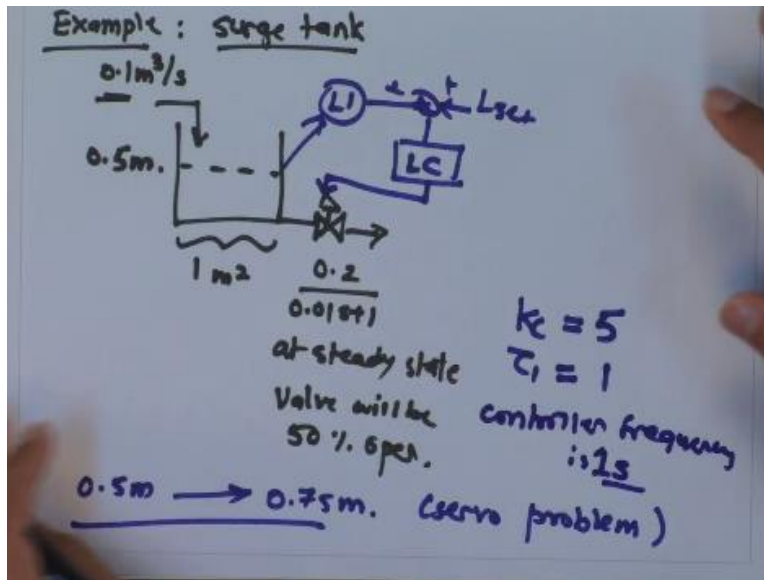 Example: surge tank
0.1m³/s
LI
- +
Lset
0.5m.
LC
1 m²
0.2
0.01s+1
at steady state
Valve will be
50 % open.
Kc = 5
τI = 1
controller frequency
is 1s
0.5m → 0.75m. (servo problem)